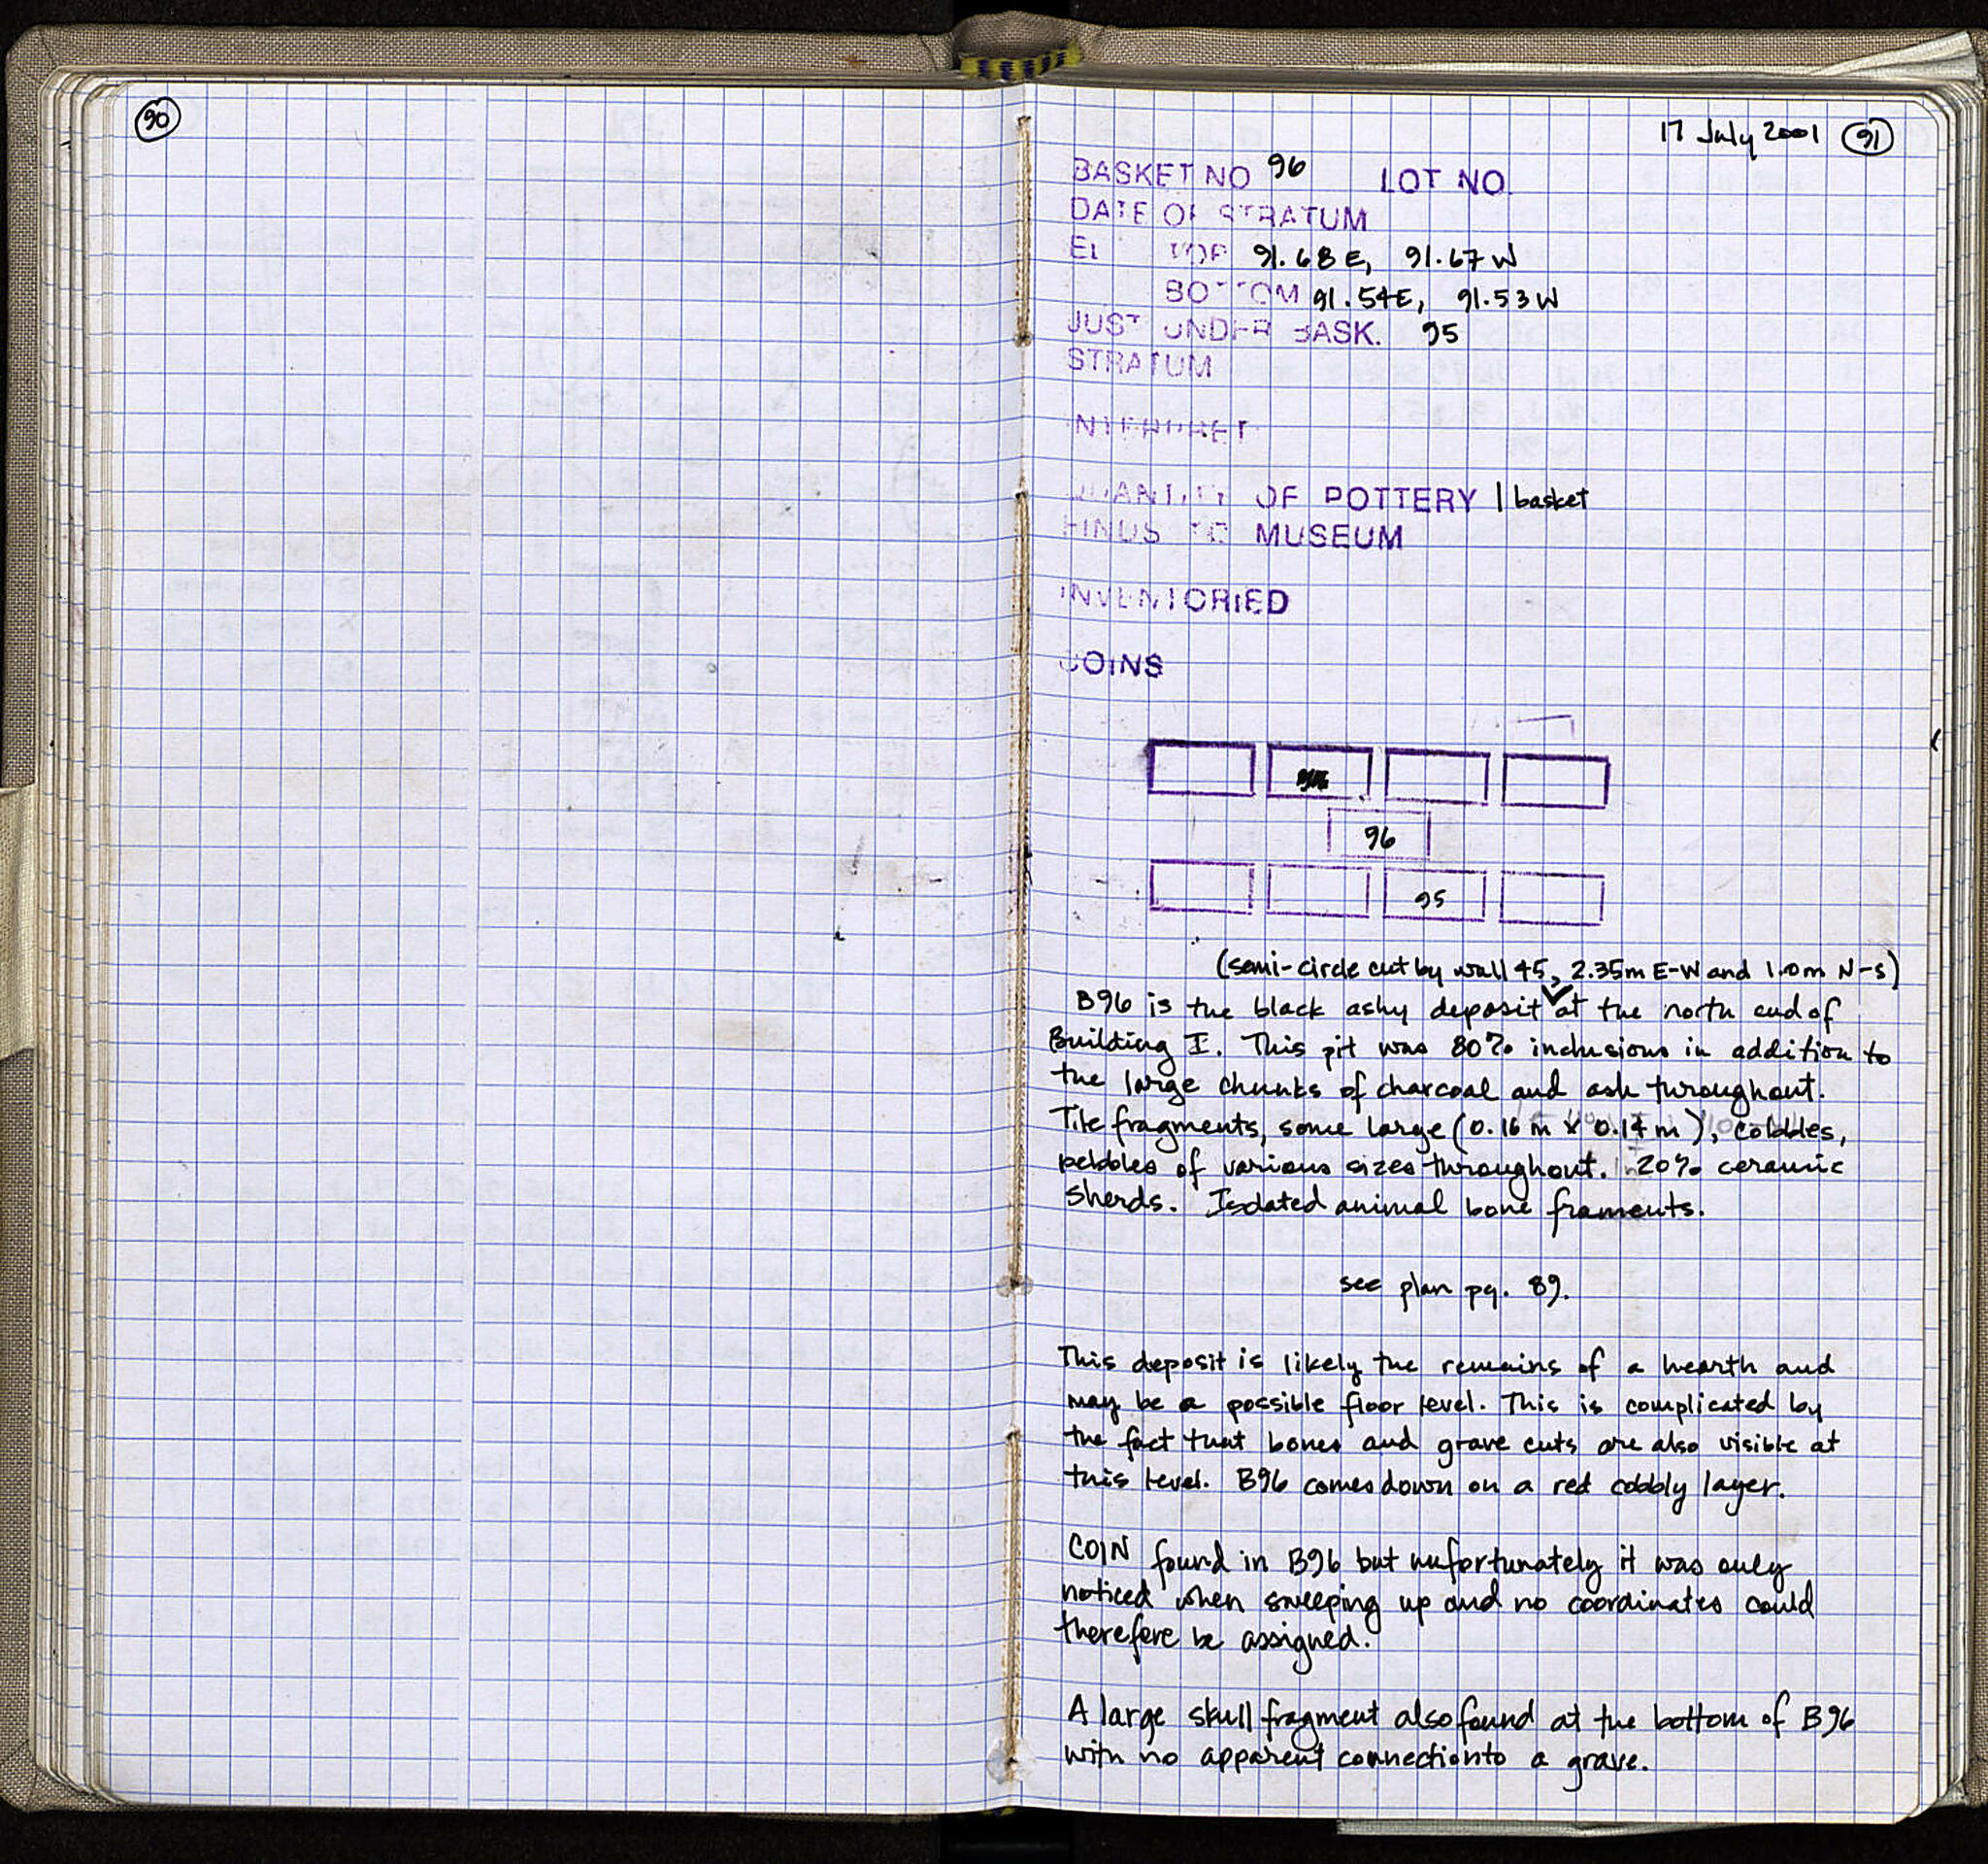 90
17 July 2001 91
BASKET NO 96 LOT NO.
DATE OF STRATUM
EL TOP 91.68 E, 91.67 W
BOTTOM 91.54E, 91.53 W
JUST UNDER BASK. 95
STRATUM
INTERPRET
QUANTITY OF POTTERY 1 basket
FINDS TO MUSEUM
INVENTORIED
COINS
96
95
(semi-circle cut by wall 45, 2.35m E-W and 1.0m N-S)
B96 is the black ashy deposit at the north end of
Building I. This pit was 80% inclusions in addition to
the large chunks of charcoal and ash throughout.
Tile fragments, some large (0.16 m x 0.14 m), cobbles,
pebbles of various sizes throughout. 20% ceramic
sherds. Isolated animal bone framents.
see plan pg. 89.
This deposit is likely the remains of a hearth and
may be a possible floor level. This is complicated by
the fact that bones and grave cuts are also visible at
this level. B96 comes down on a red cobbly layer.
COIN found in B96 but unfortunately it was only
noticed when sweeping up and no coordinates could
therefore be assigned.
A large skull fragment also found at the bottom of B96
with no apparent connection to a grave.